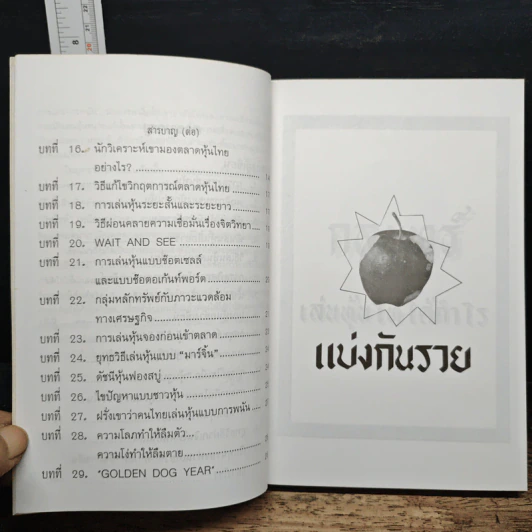 สารบาญ (ต่อ)
บทที่ 16. นักวิเคราะห์เขามองตลาดหุ้นไทย
อย่างไร?
บทที่ 17. วิธีแก้ไขวิกฤตการณ์ตลาดหุ้นไทย
บทที่ 18. การเล่นหุ้นระยะสั้นและระยะยาว
บทที่ 19. วิธีผ่อนคลายความเชื่อมั่นเรื่องจิตวิทยา
บทที่ 20. WAIT AND SEE
บทที่ 21. การเล่นหุ้นแบบช๊อตเซลล์
และแบบช๊อตอเก้นท์พอร์ต
บทที่ 22. กลุ่มหลักทรัพย์กับภาวะแวดล้อม
ทางเศรษฐกิจ
บทที่ 23. การเล่นหุ้นจองก่อนเข้าตลาด
บทที่ 24. ยุทธวิธีเล่นหุ้นแบบ "มาร์จิ้น"
บทที่ 25. ดัชนีหุ้นฟองสบู่
บทที่ 26. ไขปัญหาแบบชาวหุ้น
บทที่ 27. ฝรั่งเขาว่าคนไทยเล่นหุ้นแบบการพนัน
บทที่ 28. ความโลภทำให้ลืมตัว...
ความโง่ทำให้ลืมตาย
บทที่ 29. "GOLDEN DOG YEAR"
แบ่งกันรวย